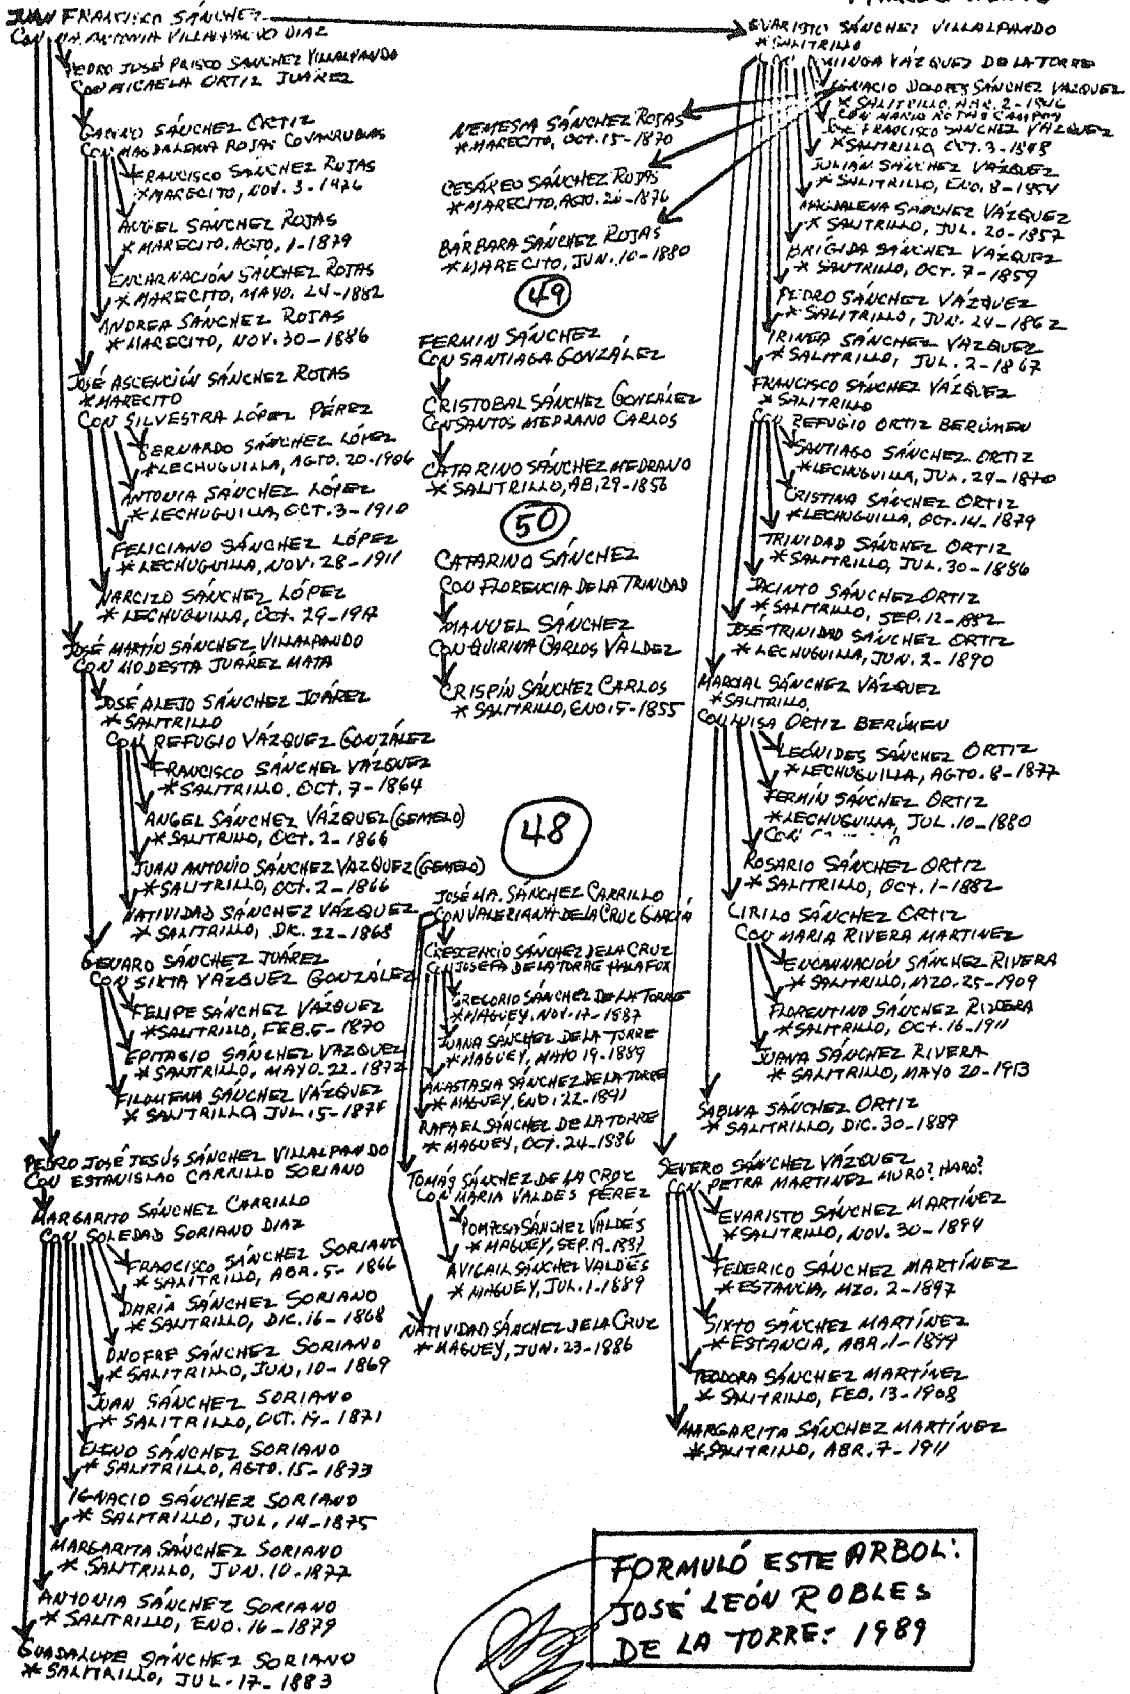 JUAN FRANCISCO SÁNCHEZ
CON MA. ANTONIA VILLALPANDO DIAZ
PEDRO JOSÉ PRISCO SANCHEZ VILLALPANDO
CON MICAELA ORTIZ JUÁREZ
SÁNCHEZ ORTIZ
CON MAGDALENA ROJAS COVARRUBIAS
FRANCISCO SÁNCHEZ ROJAS
* MARECITO, NOV. 3-
ANGEL SÁNCHEZ ROJAS
* MARECITO, AGTO. 1-1879
ENCARNACIÓN SÁNCHEZ ROJAS
* MARECITO, MAYO. 24-1882
ANDREA SÁNCHEZ ROJAS
* MARECITO, NOV. 30-1886
JOSÉ ASCENCIÓN SÁNCHEZ ROJAS
* MARECITO
CON SILVESTRA LÓPEZ PÉREZ
BERNARDO SÁNCHEZ LÓPEZ
* LECHUGUILLA, AGTO. 20-1906
ANTONIA SÁNCHEZ LÓPEZ
* LECHUGUILLA, OCT. 3-1910
FELICIANO SÁNCHEZ LÓPEZ
* LECHUGUILLA, NOV. 28-1911
NARCIZO SÁNCHEZ LÓPEZ
* LECHUGUILLA, OCT. 29-
JOSÉ MARTÍN SÁNCHEZ VILLALPANDO
CON MODESTA JUAREZ MATA
JOSÉ ALEJO SÁNCHEZ JUÁREZ
* SALITRILLO
CON REFUGIO VÁZQUEZ GONZÁLEZ
FRANCISCO SÁNCHEZ VÁZQUEZ
* SALITRILLO, OCT. 7-1864
ANGEL SÁNCHEZ VÁZQUEZ (GEMELO)
* SALITRILLO, OCT. 2-1866
JUAN ANTONIO SÁNCHEZ VÁZQUEZ (GEMELO)
* SALITRILLO, OCT. 2-1866
NATIVIDAD SÁNCHEZ VÁZQUEZ
* SALITRILLO, DIC. 22-1868
GENARO SÁNCHEZ JUÁREZ
CON SIXTA VÁZQUEZ GONZÁLEZ
FELIPE SÁNCHEZ VÁZQUEZ
* SALITRILLO, FEB. 5-1870
EPITACIO SÁNCHEZ VÁZQUEZ
* SALITRILLO, MAYO. 22-1872
FILOMENA SÁNCHEZ VÁZQUEZ
* SALITRILLO, JUL. 5-
PEDRO JOSÉ JESÚS SÁNCHEZ VILLALPANDO
CON ESTANISLAO CARRILLO SORIANO
MARGARITO SÁNCHEZ CARRILLO
CON SOLEDAD SORIANO DIAZ
FRANCISCO SÁNCHEZ SORIANO
* SALITRILLO, ABR. 5-1866
DARIA SÁNCHEZ SORIANO
* SALITRILLO, DIC. 16-1868
ONOFRE SÁNCHEZ SORIANO
* SALITRILLO, JUN. 10-1869
JUAN SÁNCHEZ SORIANO
* SALITRILLO, OCT. 19-1871
ELENO SÁNCHEZ SORIANO
* SALITRILLO, AGTO. 15-1873
IGNACIO SÁNCHEZ SORIANO
* SALITRILLO, JUL. 14-1875
MARGARITA SÁNCHEZ SORIANO
* SALITRILLO, JUN. 10-1877
ANTONIA SÁNCHEZ SORIANO
* SALITRILLO, ENO. 16-1879
GUADALUPE SÁNCHEZ SORIANO
* SALITRILLO, JUL. 17-1883
NEMESIA SÁNCHEZ ROJAS
* MARECITO, OCT. 15-1870
CESÁREO SÁNCHEZ ROJAS
* MARECITO, AGTO. 1876
BÁRBARA SÁNCHEZ ROJAS
* MARECITO, JUN. 10-1880
49
FERMIN SÁNCHEZ
CON SANTIAGA GONZÁLEZ
CRISTOBAL SÁNCHEZ GONZÁLEZ
CON SANTOS MEDRANO CARLOS
CATARINO SÁNCHEZ MEDRANO
* SALITRILLO, AB. 29-1856
50
CATARINO SÁNCHEZ
CON FLORENCIA DE LA TRINIDAD
MANUEL SÁNCHEZ
CON QUIRINA CARLOS VALDEZ
CRISPÍN SÁNCHEZ CARLOS
* SALITRILLO, ENO. 5-1855
48
JOSÉ MA. SÁNCHEZ CARRILLO
CON VALERIANA DE LA CRUZ GARCÍA
CRESCENCIO SÁNCHEZ DE LA CRUZ
CON JOSEFA DE LA TORRE
GREGORIO SÁNCHEZ DE LA TORRE
* MAGUEY, NOV. 17-1887
JUANA SÁNCHEZ DE LA TORRE
* MAGUEY, MAYO 19-1889
ANASTASIA SÁNCHEZ DE LA TORRE
* MAGUEY, ENO. 22-1891
RAFAEL SÁNCHEZ DE LA TORRE
* MAGUEY, OCT. 24-1886
TOMÁS SÁNCHEZ DE LA CRUZ
CON MARIA VALDES PÉREZ
SÁNCHEZ VALDÉS
* MAGUEY, SEP. 19-1887
AVIGAIL SÁNCHEZ VALDÉS
* MAGUEY, JUL. 1-1889
NATIVIDAD SÁNCHEZ DE LA CRUZ
* MAGUEY, JUN. 23-1886
EVARISTO SÁNCHEZ VILLALPANDO
* SALITRILLO
VÁZQUEZ DE LA TORRE
IGNACIO DOLORES SÁNCHEZ VÁZQUEZ
* SALITRILLO, MAR. 2-1846
FRANCISCO SÁNCHEZ VÁZQUEZ
* SALITRILLO, OCT. 3-1848
JULIÁN SÁNCHEZ VÁZQUEZ
* SALITRILLO, ENO. 8-1854
MAGDALENA SÁNCHEZ VÁZQUEZ
* SALITRILLO, JUL. 20-1857
BRÍGIDA SÁNCHEZ VÁZQUEZ
* SALITRILLO, OCT. 7-1859
PEDRO SÁNCHEZ VÁZQUEZ
* SALITRILLO, JUN. 24-1862
IRINEA SÁNCHEZ VÁZQUEZ
* SALITRILLO, JUL. 2-1867
FRANCISCO SÁNCHEZ VÁZQUEZ
* SALITRILLO
CON REFUGIO ORTIZ BERÚMEN
SANTIAGO SÁNCHEZ ORTIZ
* LECHUGUILLA, JUL. 29-1870
CRISTINA SÁNCHEZ ORTIZ
* LECHUGUILLA, OCT. 14-1879
TRINIDAD SÁNCHEZ ORTIZ
* SALITRILLO, JUL. 30-1886
JACINTO SÁNCHEZ ORTIZ
* SALITRILLO, SEP. 12-1882
JOSÉ TRINIDAD SÁNCHEZ ORTIZ
* LECHUGUILLA, JUN. 2-1890
MARCIAL SÁNCHEZ VÁZQUEZ
* SALITRILLO,
CON LUISA ORTIZ BERÚMEN
LEÓNIDES SÁNCHEZ ORTIZ
* LECHUGUILLA, AGTO. 8-1877
FERMÍN SÁNCHEZ ORTIZ
* LECHUGUILLA, JUL. 10-1880
CON
ROSARIO SÁNCHEZ ORTIZ
* SALITRILLO, OCT. 1-1882
CIRILO SÁNCHEZ ORTIZ
CON MARIA RIVERA MARTINEZ
ENCARNACIÓN SÁNCHEZ RIVERA
* SALITRILLO, MZO. 25-1909
FLORENTINO SÁNCHEZ RIVERA
* SALITRILLO, OCT. 16-1911
JUANA SÁNCHEZ RIVERA
* SALITRILLO, MAYO 20-1913
SABINA SÁNCHEZ ORTIZ
* SALITRILLO, DIC. 30-1889
SEVERO SÁNCHEZ VÁZQUEZ
CON PETRA MARTINEZ MURO? HARO?
EVARISTO SÁNCHEZ MARTÍNEZ
* SALITRILLO, NOV. 30-1894
FEDERICO SÁNCHEZ MARTÍNEZ
* ESTANCIA, MZO. 2-1897
SIXTO SÁNCHEZ MARTÍNEZ
* ESTANCIA, ABR. 1-1899
TEODORA SÁNCHEZ MARTÍNEZ
* SALITRILLO, FEB. 13-1908
MARGARITA SÁNCHEZ MARTÍNEZ
* SALITRILLO, ABR. 7-1911
FORMULÓ ESTE ARBOL:
JOSÉ LEÓN ROBLES
DE LA TORRE: 1989